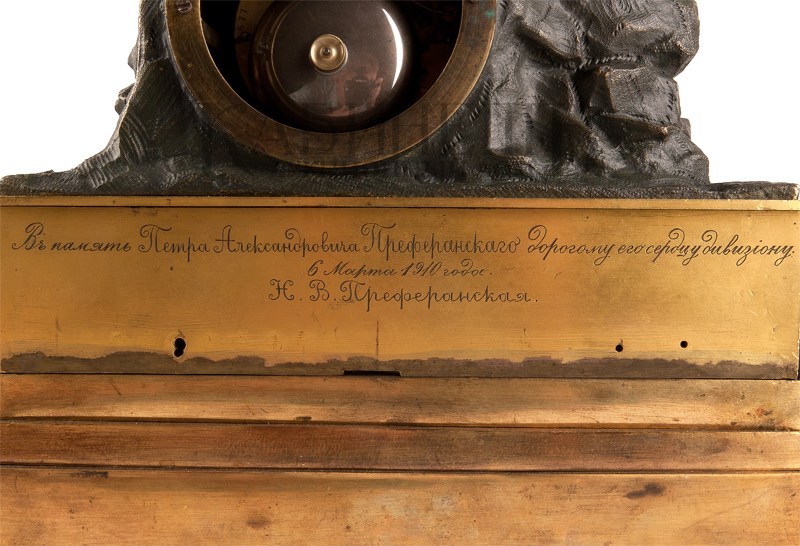 Въ память Петра Александровича Преферанскаго дорогому его сердцу дивизіону.
6 Марта 1910 года.
Н. В. Преферанская.